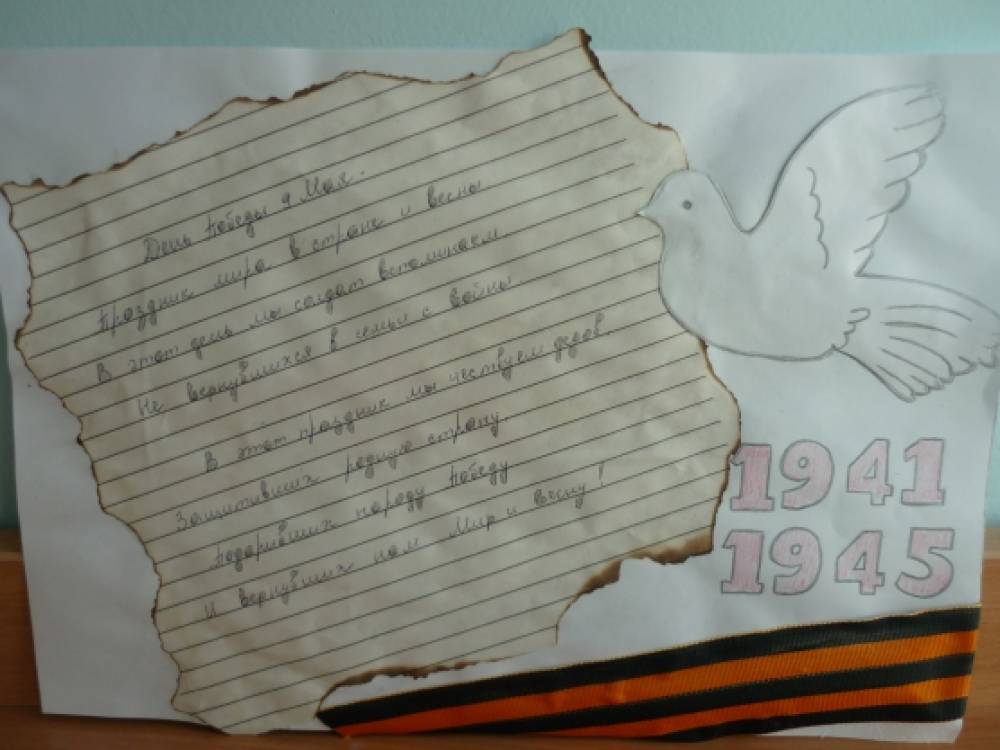 День Победы 9 Мая.
Праздник мира в стране и весны
В этот день мы солдат вспоминаем
Не вернувшихся в семьи с войны.
В этот праздник мы чествуем дедов
Защитивших родную страну,
Подаривших народу Победу
И вернувших нам Мир и Весну!
1941
1945